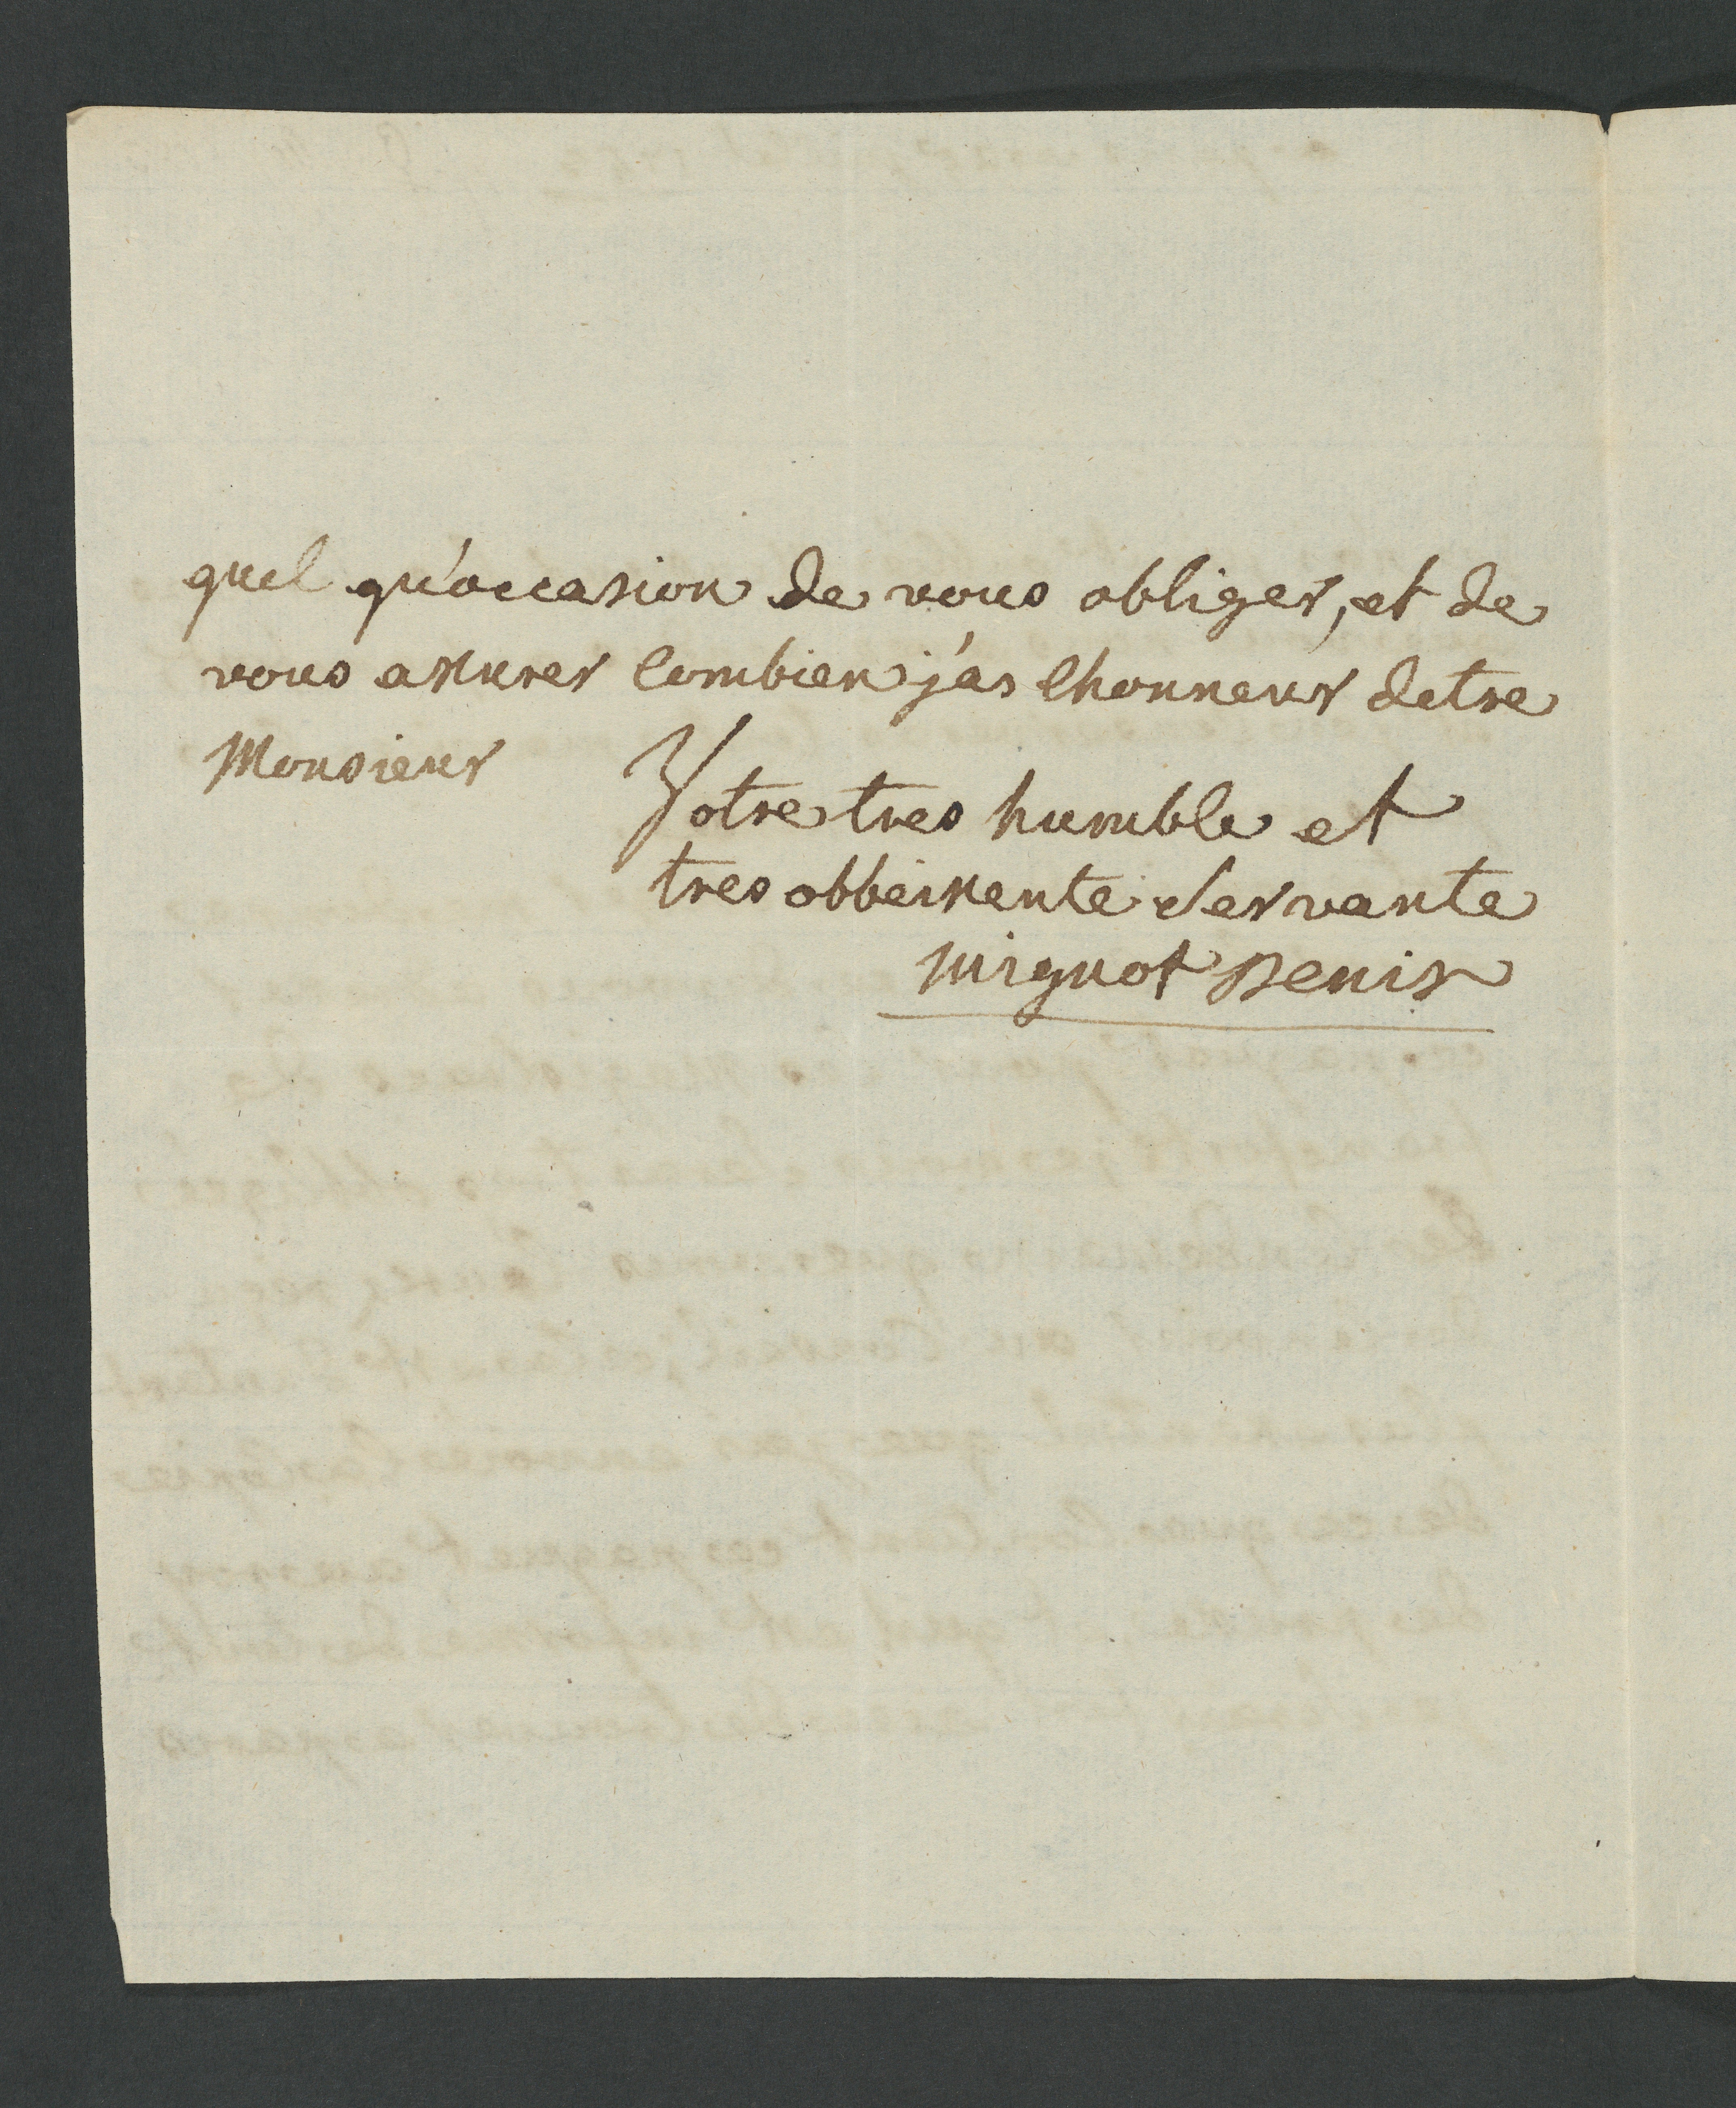 quel qu'occasion de vous obliger, et de
vous assurer combien j'ai lhonneur detre
Monsieur
Votre tres humble et
tres obbeissente servante
mignot Denis